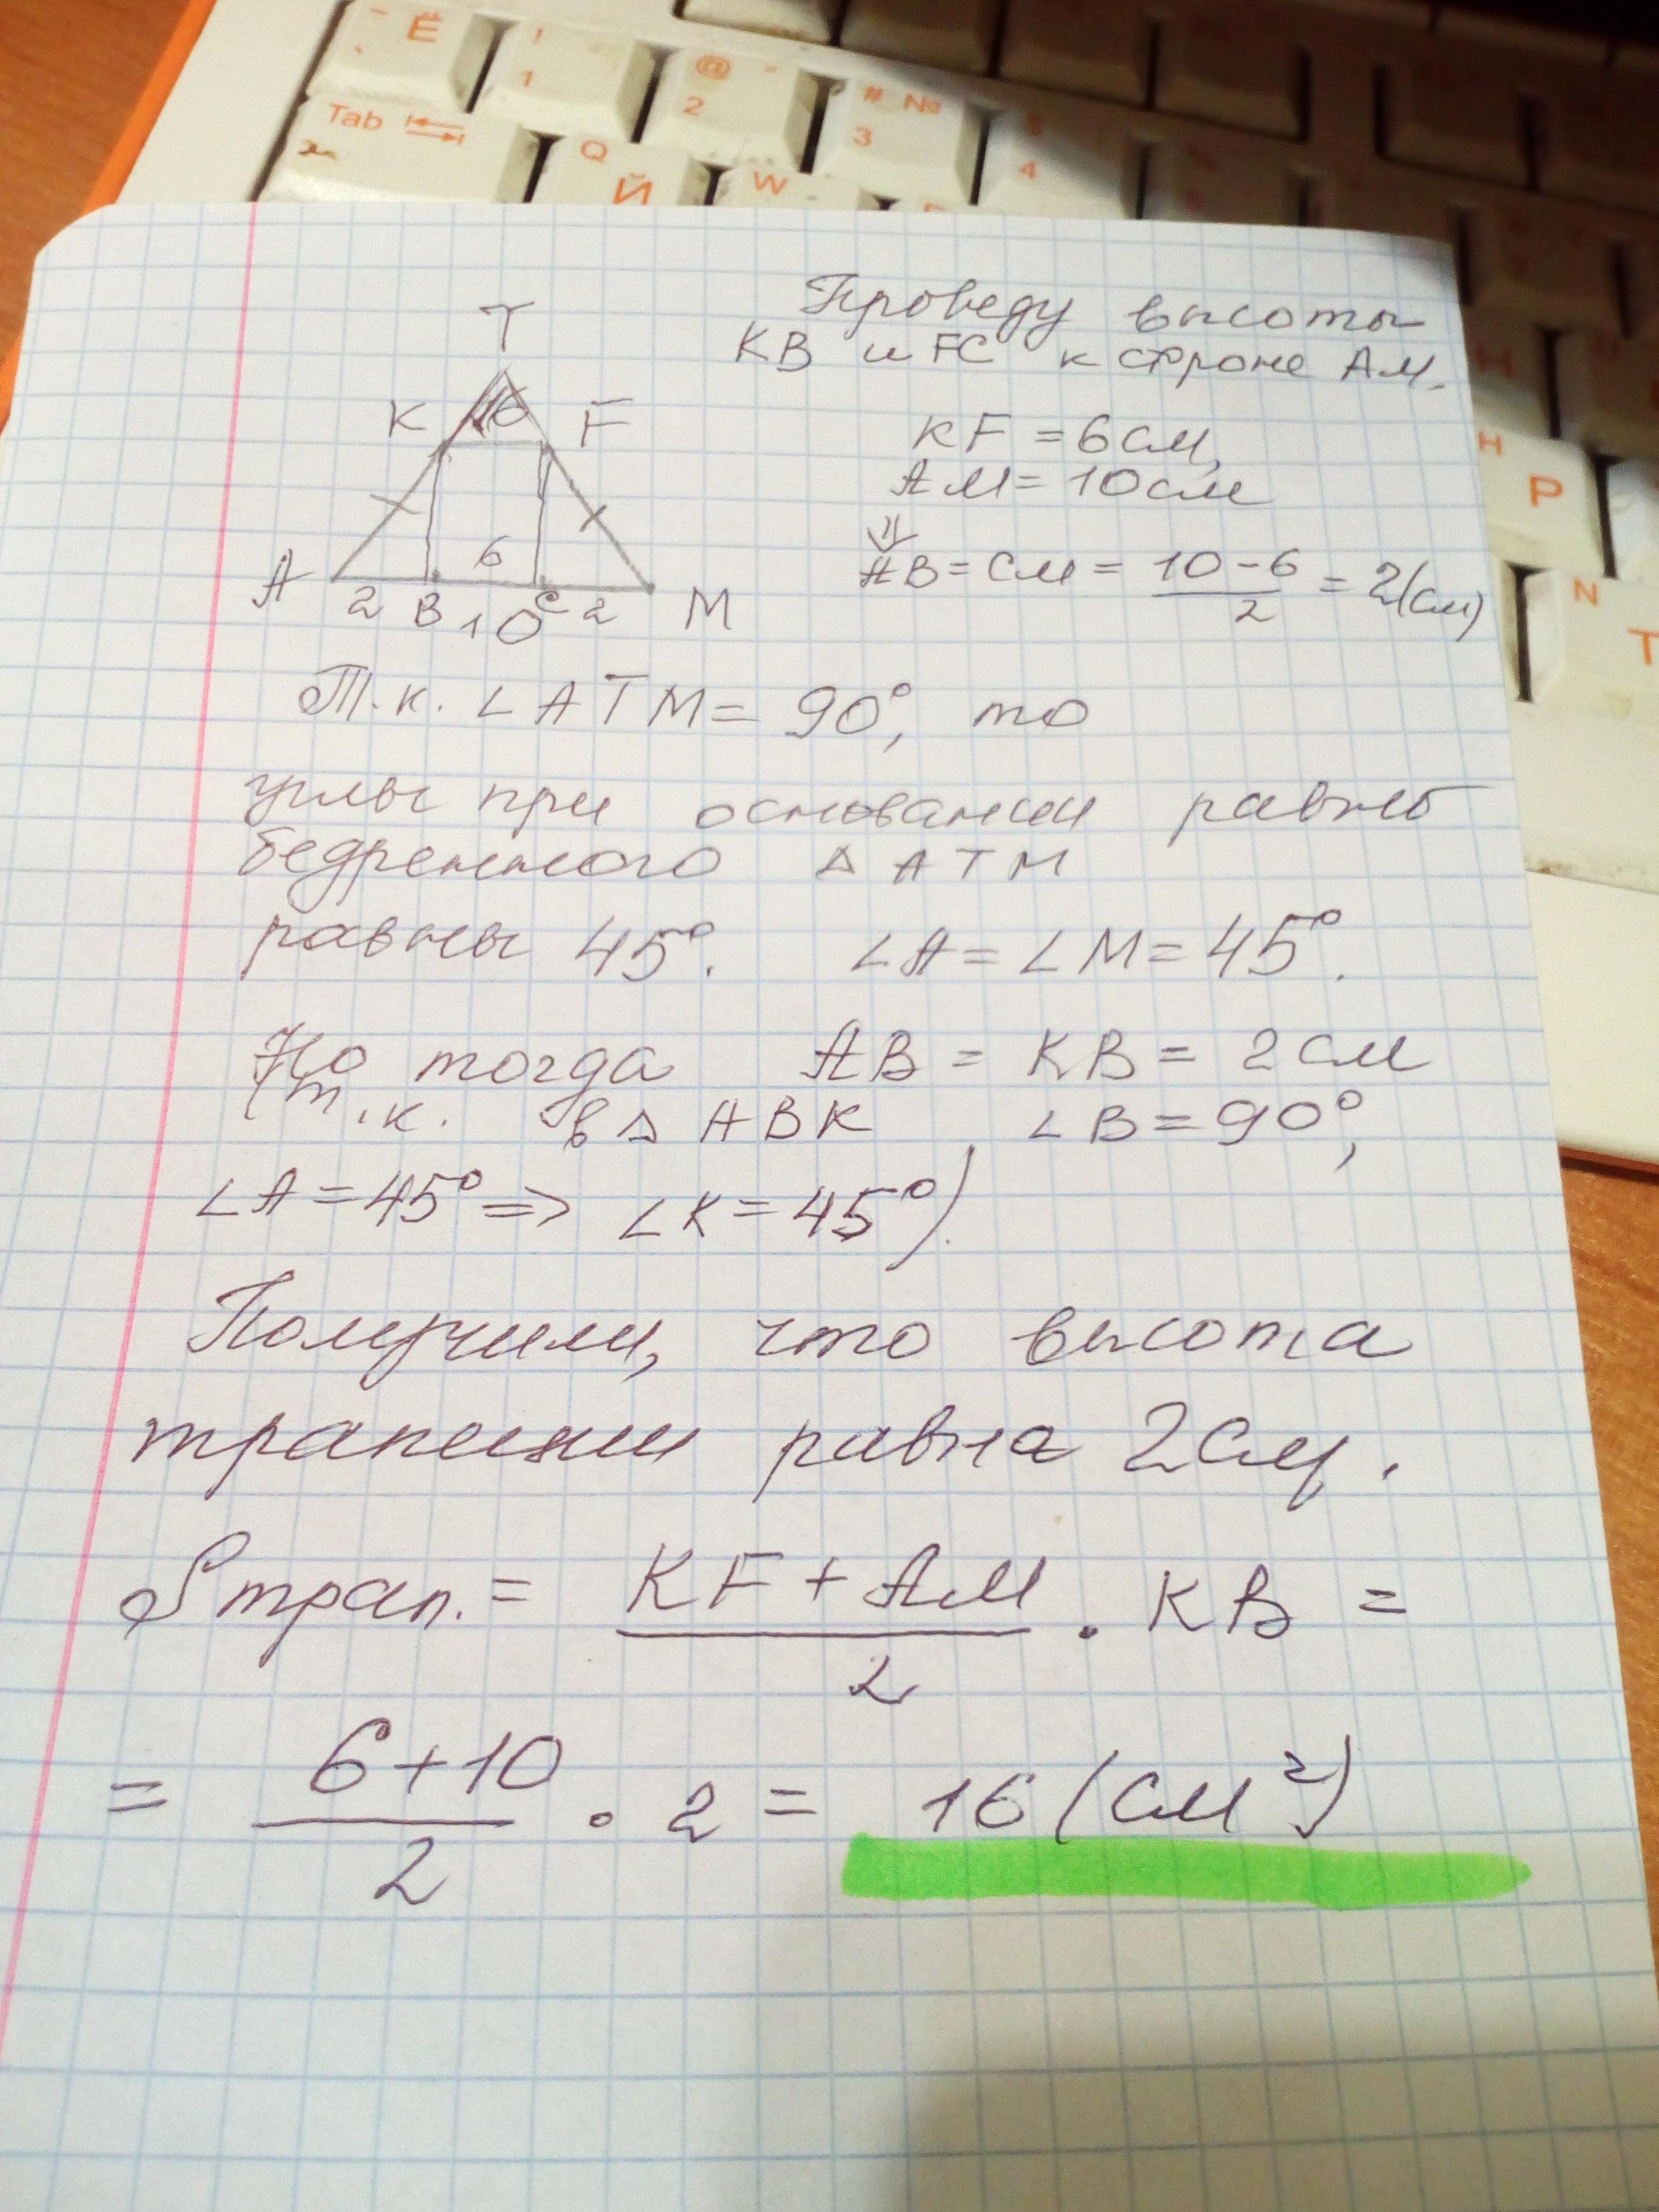 Ё
! 1
@ 2
# № 3
4
Tab
Q Й
W
Н
Р
N Т
Проведу высоты
KB и FC к стороне AM.
KF = 6см,
AM = 10см
⇓
AB = CM = 10 - 6 / 2 = 2(см)
T
K F
6
A 2 B 10 C 2 M
Т.к. ∠ATM = 90°, то
углы при основании равно
бедренного △ ATM
равны 45°. ∠A = ∠M = 45°.
Но тогда AB = KB = 2см
(т.к. в △ ABK ∠B = 90°,
∠A = 45° => ∠K = 45°).
Получили, что высота
трапеции равна 2см.
Sтрап. = KF + AM / 2 · KB =
= 6+10 / 2 · 2 = 16 (см²)